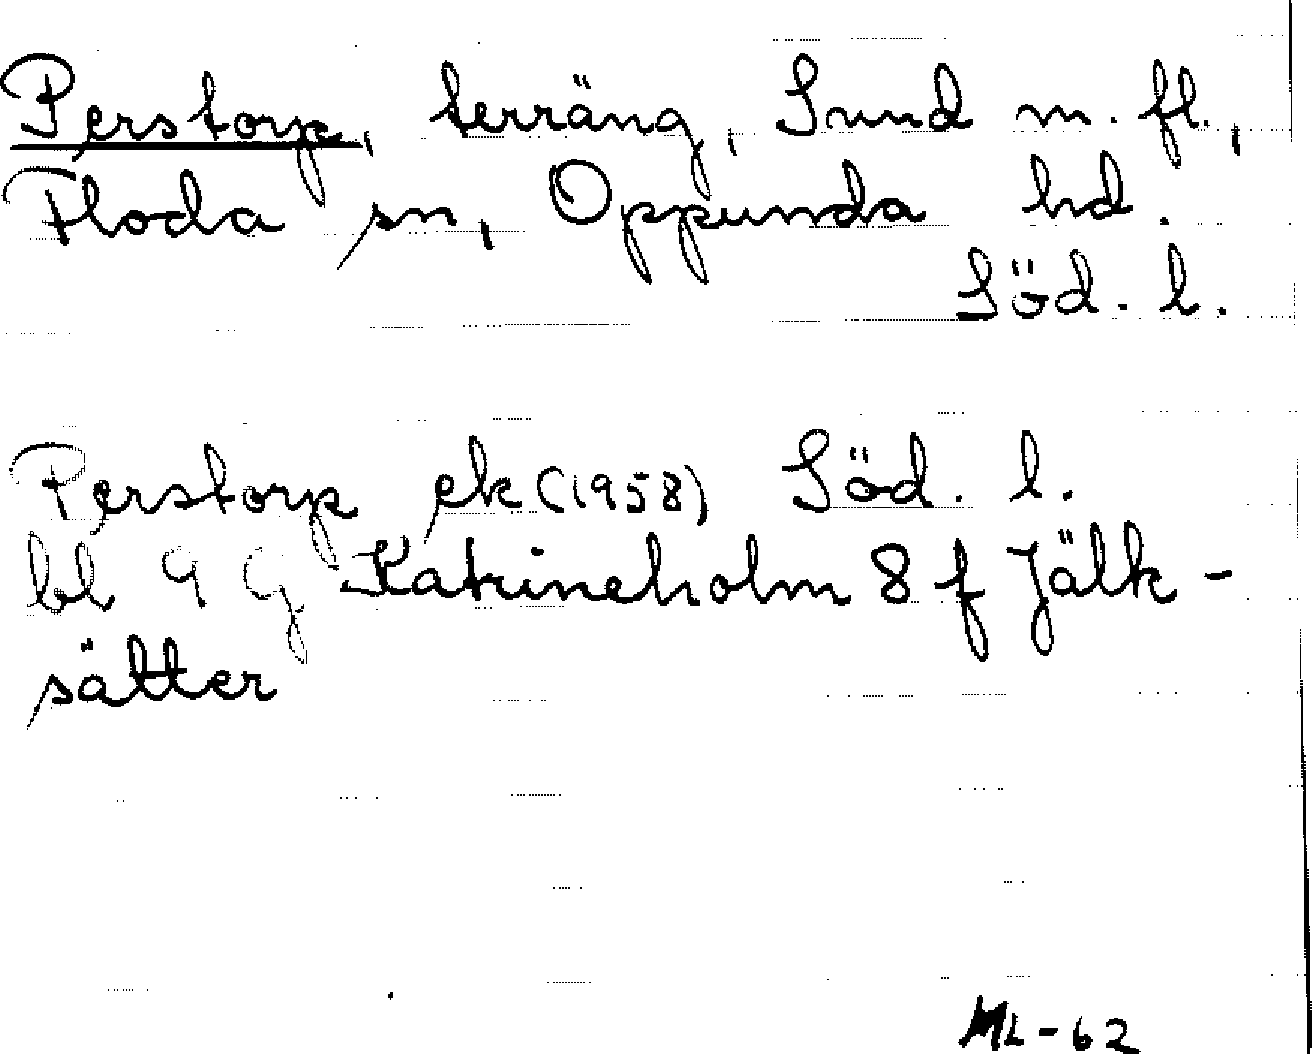 Perstorp, terräng, Sund m. fl.,
Floda sn, Oppunda hd.
Söd. l.
Perstorp ek (1958) Söd. l.
bl 9 G Katrineholm 8 f Jälk-
sätter
ML-62